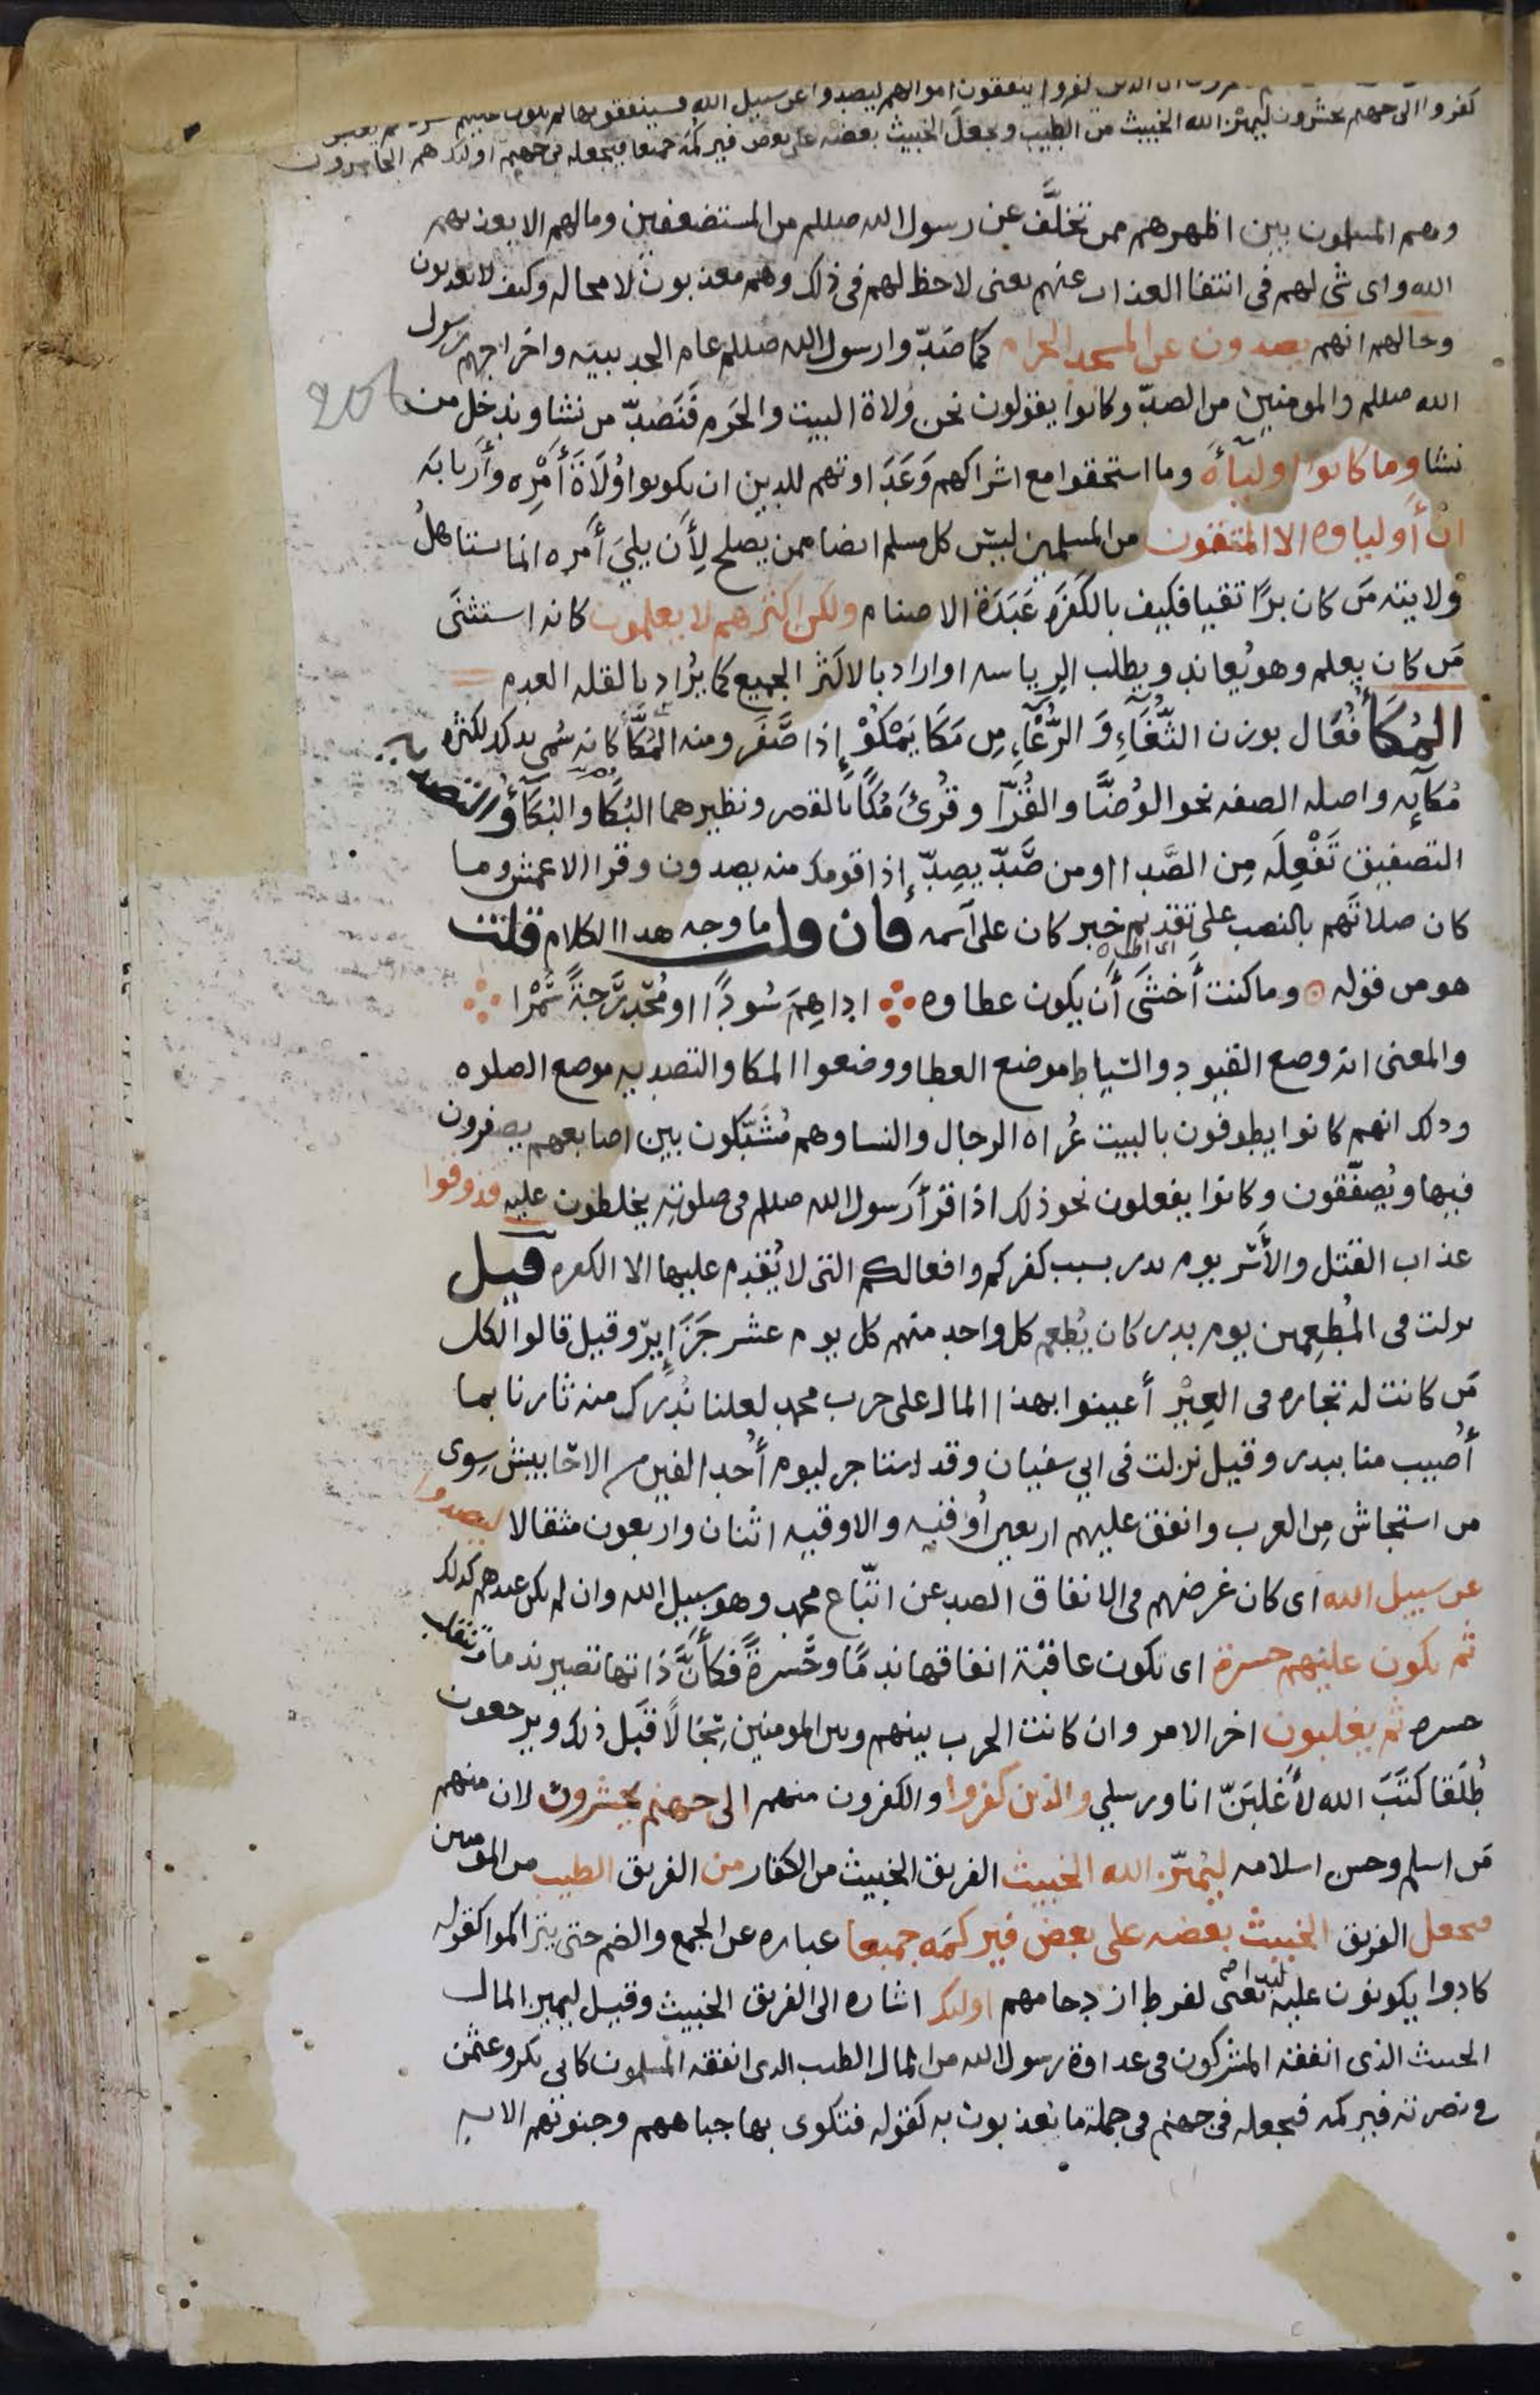 ان الذين كفروا ينفقون اموالهم ليصدوا عن سبيل الله فسينفقونها ثم تكون عليهم حسرة ثم يغلبون
كفروا الى جهنم يحشرون ليميز الله الخبيث من الطيب ويجعل الخبيث بعضه على بعض فيركمه جميعا فيجعله في جهنم اولئك هم الخاسرون
وهم المسلمون بين اظهرهم ممن تخلَّف عن رسول الله صللم من المستضعفين ومالهم الا يعذبهم
الله واى شى لهم فى انتفا العذاب عنهم يعنى لاحظ لهم فى ذلك وهم معذبون لا محاله وكيف لا يعذبون
وحالهم انهم يصدون عن المسجد الحرام كما صدّوا رسول الله صللم عام الحديبيه واخراجهم رسول
الله صللم والمومنين من الصدّ وكانوا يقولون نحن وُلاة البيت والحَرم فَنَصُدّ من نشا وندخل من
نشا وما كانوا اولياءَه وما استحقوا مع اشراكهم وَعَدَاوتهم للدين ان يكونوا وُلَاةَ أَمْرِه وأربابَه
انْ أَولياوه الا المتقون من المسلمين ليس كل مسلم ايضا ممن يصلح لِأَن يليَ أَمره انما يستاهلُ
وُلايته مَن كان برًا تقيا فكيف بالكَفَرَة عَبَدَة الاصنام ولكن اكثرهم لا يعلمون كانه استثنى
مَن كان يعلم وهو يُعاند ويطلب الرياسه او اراد بالاكثر الجميع كما يُراد بالقله العدم
المُكَا فُعَال بوزن الثُّغَآءِ وَ الرُّغَآءِ مِن مَكَا يَمْكُوْ إِذا صَفَر ومنه المُكَّا كانه سُمى بذلك لكثره
مُكَآئِه واصله الصفه نحو الوُضَّا والقُرّآ وقُرئَ مُكًا بالقصر ونظيرهما البُكَا والبُكَآءُ والتصديه
التصفيق تَفْعِلَه مِن الصَّدا او من صَّدّ يصِدّ إِذا قومك منه يصدون وقرا الاعمش وما
كان صلاتَهم بالنصب على تقديم خبر كان على اسمه فان قلت ما وجه هدا الكلام قلت
هو من قوله وما كنت أَخشَى أَن يكون عطاوه اداهِمَ سُودًا او مُحَدرَجَةً سُمْرا
والمعنى انه وضع القيود والسياط موضع العطا ووضعوا المكا والتصديه موضع الصلوه
ودلك انهم كانوا يطوفون بالبيت عُراه الرجال والنسا وهم مُشَبِّكون بين اصابعهم يصفرون
فيها ويُصفّقون وكانوا يفعلون نحو ذلك اذا قرَأَ رسول الله صللم فى صلوته يخلطون عليه فذوقوا
عذاب القتل والأَسْر يوم بدر بسبب كفركم وافعالكم التى لا يُقدِم عليها الا الكفره قيل
نزلت فى المُطعِمين يوم بدر كان يُطعِم كل واحد منهم كل يوم عشر جَزَايِر وقيل قالوا لكل
مَن كانت له تجاره فى العِيْر أعينوا بهذا المال على حرب محمد لعلنا نُدرك منه ثارنا بما
أُصيب منا ببدر وقيل نزلت فى ابي سفيان وقد استاجر ليوم أُحد الفين من الاحَابيش سِوى
من استجاش مِن العرب وانفق عليهم اربعين أُوقيه والاوقيه اثنان واربعون مثقالا ليصدوا
عن سبيل الله اى كان غرضهم فى الانفاق الصد عن اتّباع محمد وهو سبيل الله وان لم يكن عندهم كدلك
ثم تكون عليهم حسرة اى تكون عاقبة انفاقها ندمًا وحَسرةً فكأَنَّ ذاتها تصير ندما وتنقلب
حسره ثم يغلبون اخر الامر وان كانت الحرب بينهم وبين المومنين سِجَالًا قبل ذلك ويرجعون
طُلَقا كَتَبَ الله لأَغلبَنّ انا ورسلي والذين كفروا والكفرون منهم الى جهنم يحشرون لان منهم
مَن اسلم وحسن اسلامه ليميّز الله الخبيث الفريق الخبيث من الكفار من الفريق الطيب من المومنين
فيجعل الفريق الخبيث بعضه على بعض فيركمَه جميعا عباره عن الجمع والضم حتى يتراكموا كقوله
كادوا يكونون عليه لبدا يعنى لفرط ازدحامهم اولئك اشاره الى الفريق الخبيث وقيل ليميز المال
الخبيث الذى انفقه المشركون فى عداوة رسول الله من المال الطيب الدى انفقه المسلمون كابى بكر وعثمن
فى نصرته فيركمه فيجعله فى جهنم فى جملة ما يعذبون به كقوله فتكوى بها جباههم وجنوبهم الايه